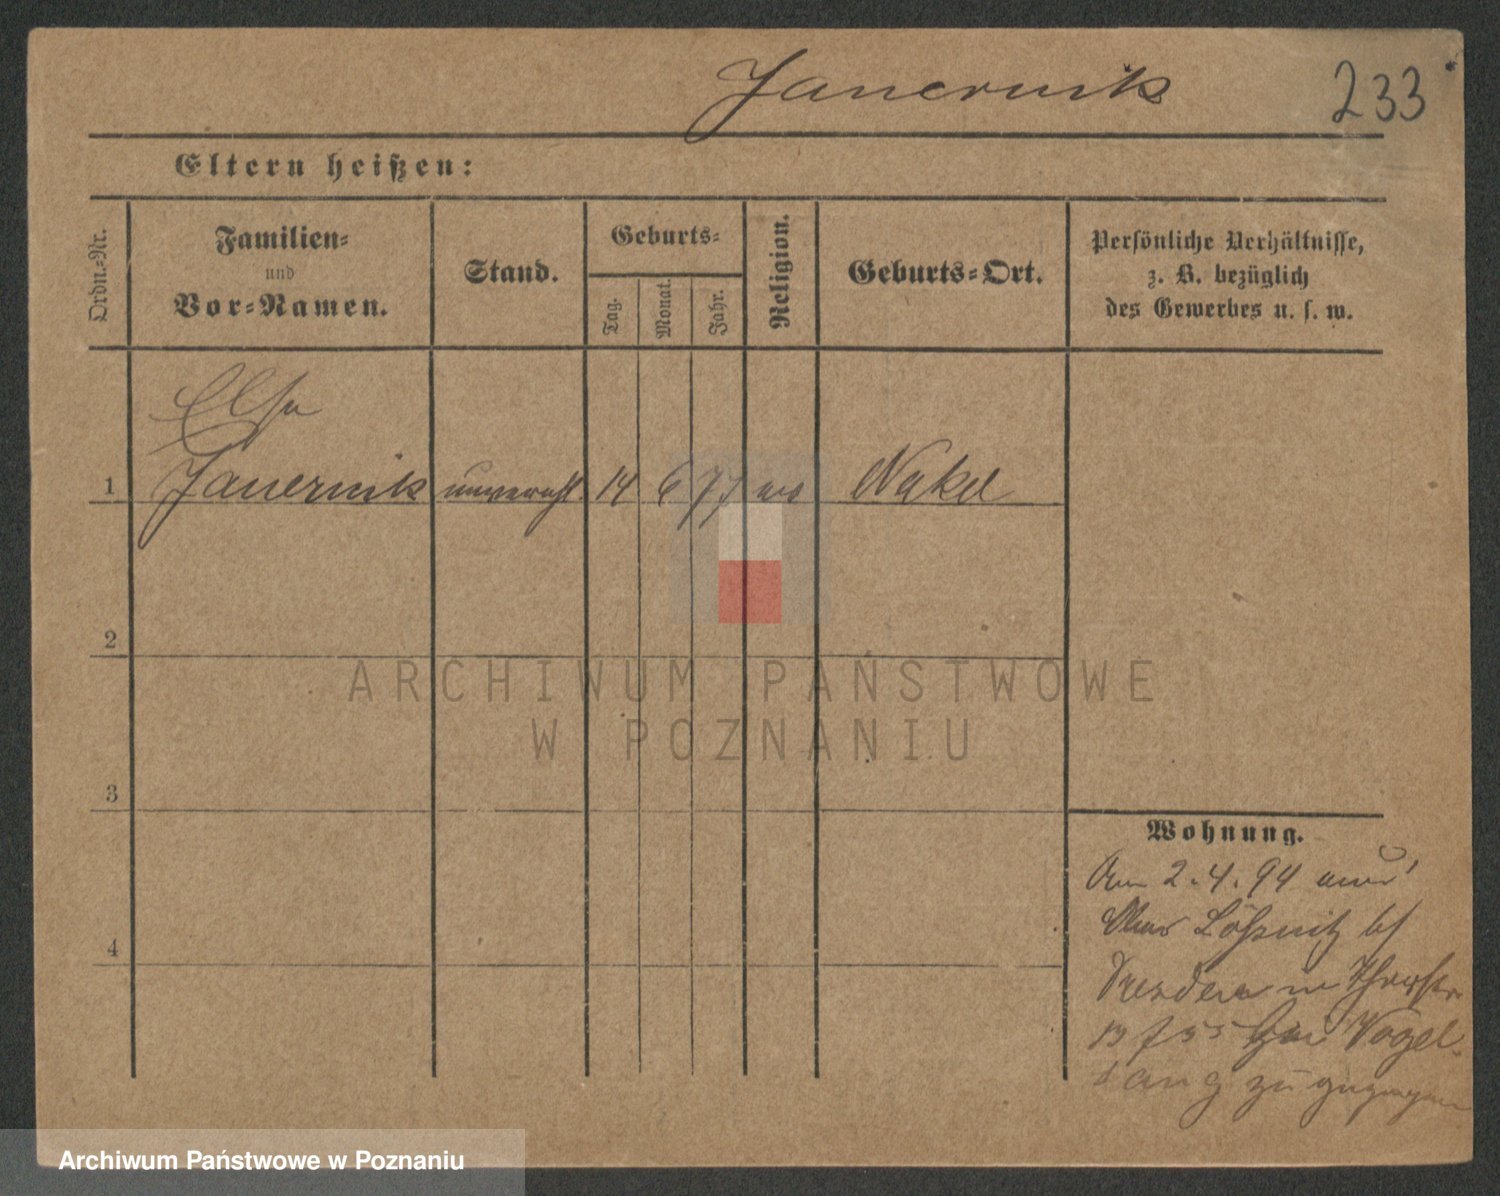 Janernik
233
Eltern heißen:
Ordn.-Nr.
Familien-
und
Vor-Namen.
Stand.
Geburts-
Tag.
Monat.
Jahr.
Religion.
Geburts-Ort.
Persönliche Verhältnisse,
z. B. bezüglich
des Gewerbes u. s. w.
Elsa
1 Janernik 14 6 77 Nakel
2
3
4
ARCHIWUM PAŃSTWOWE
W POZNANIU
Wohnung.
Am 2.4.94 aus
Ober Lößnitz b/
Dresden in
bei Vogel-
sang zugezogen
Archiwum Państwowe w Poznaniu